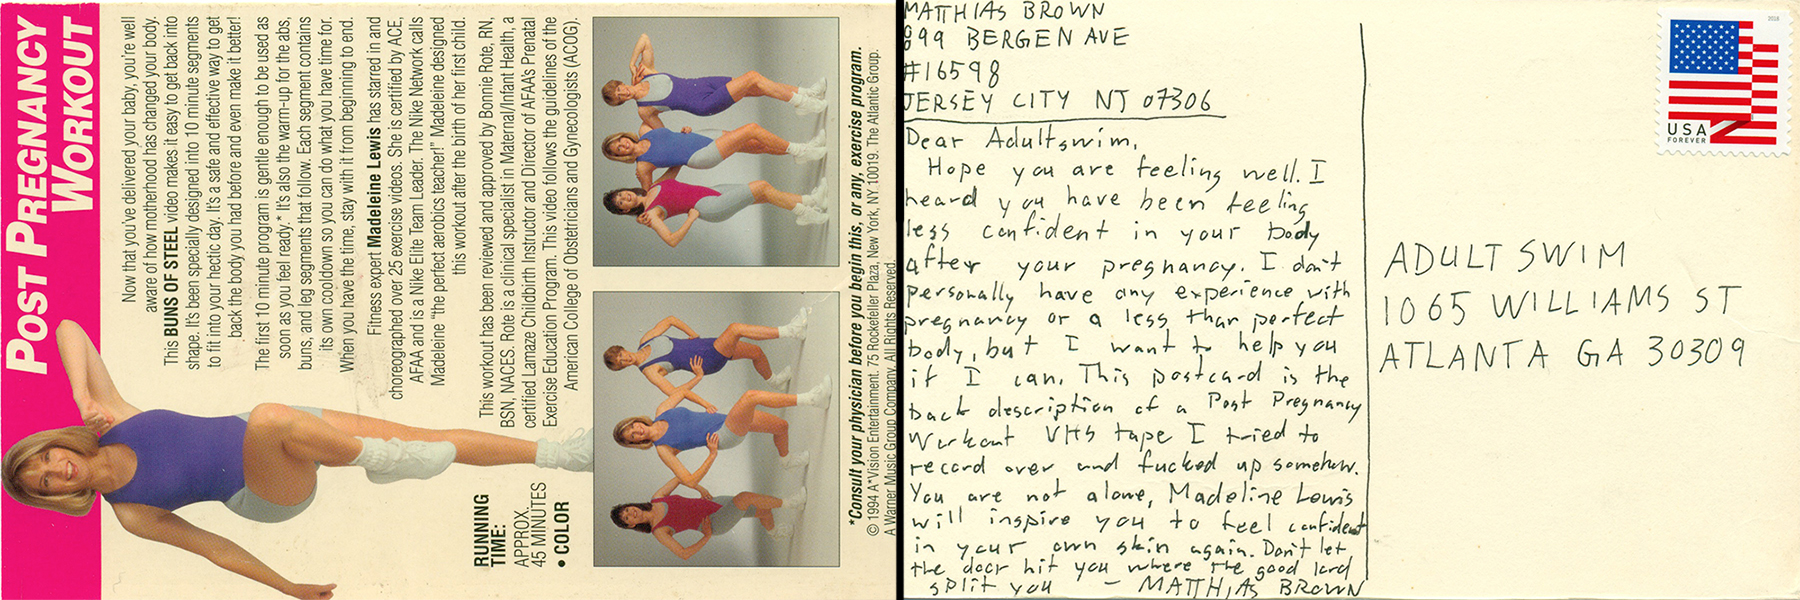 POST PREGNANCY
WORKOUT
Now that you've delivered your baby, you're well
aware of how motherhood has changed your body.
This BUNS OF STEEL video makes it easy to get back into
shape. It's been specially designed into 10 minute segments
to fit into your hectic day. It's a safe and effective way to get
back the body you had before and even make it better!
The first 10 minute program is gentle enough to be used as
soon as you feel ready.* It's also the warm-up for the abs,
buns, and leg segments that follow. Each segment contains
its own cooldown so you can do what you have time for.
When you have the time, stay with it from beginning to end.
Fitness expert Madeleine Lewis has starred in and
choreographed over 25 exercise videos. She is certified by ACE,
AFAA and is a Nike Elite Team Leader. The Nike Network calls
Madeleine "the perfect aerobics teacher!" Madeleine designed
this workout after the birth of her first child.
This workout has been reviewed and approved by Bonnie Rote, RN,
BSN, NACES. Rote is a clinical specialist in Maternal/Infant Health, a
certified Lamaze Childbirth Instructor and Director of AFAA's Prenatal
Exercise Education Program. This video follows the guidelines of the
American College of Obstetricians and Gynecologists (ACOG).
RUNNING
TIME:
APPROX.
45 MINUTES
• COLOR
*Consult your physician before you begin this, or any, exercise program.
© 1994 A*Vision Entertainment. 75 Rockefeller Plaza, New York, NY 10019. The Atlantic Group.
A Warner Music Group Company. All Rights Reserved.
MATTHIAS BROWN
899 BERGEN AVE
#16598
JERSEY CITY NJ 07306
Dear Adultswim,
Hope you are feeling well. I
heard you have been feeling
less confident in your body
after your pregnancy. I don't
personally have any experience with
pregnancy or a less than perfect
body, but I want to help you
if I can. This postcard is the
back description of a Post Pregnancy
Workout VHS tape I tried to
record over and fucked up somehow.
You are not alone, Madeline Lewis
will inspire you to feel confident
in your own skin again. Don't let
the door hit you where the good lord
split you — MATTHIAS BROWN
2018
USA
FOREVER
ADULT SWIM
1065 WILLIAMS ST
ATLANTA GA 30309